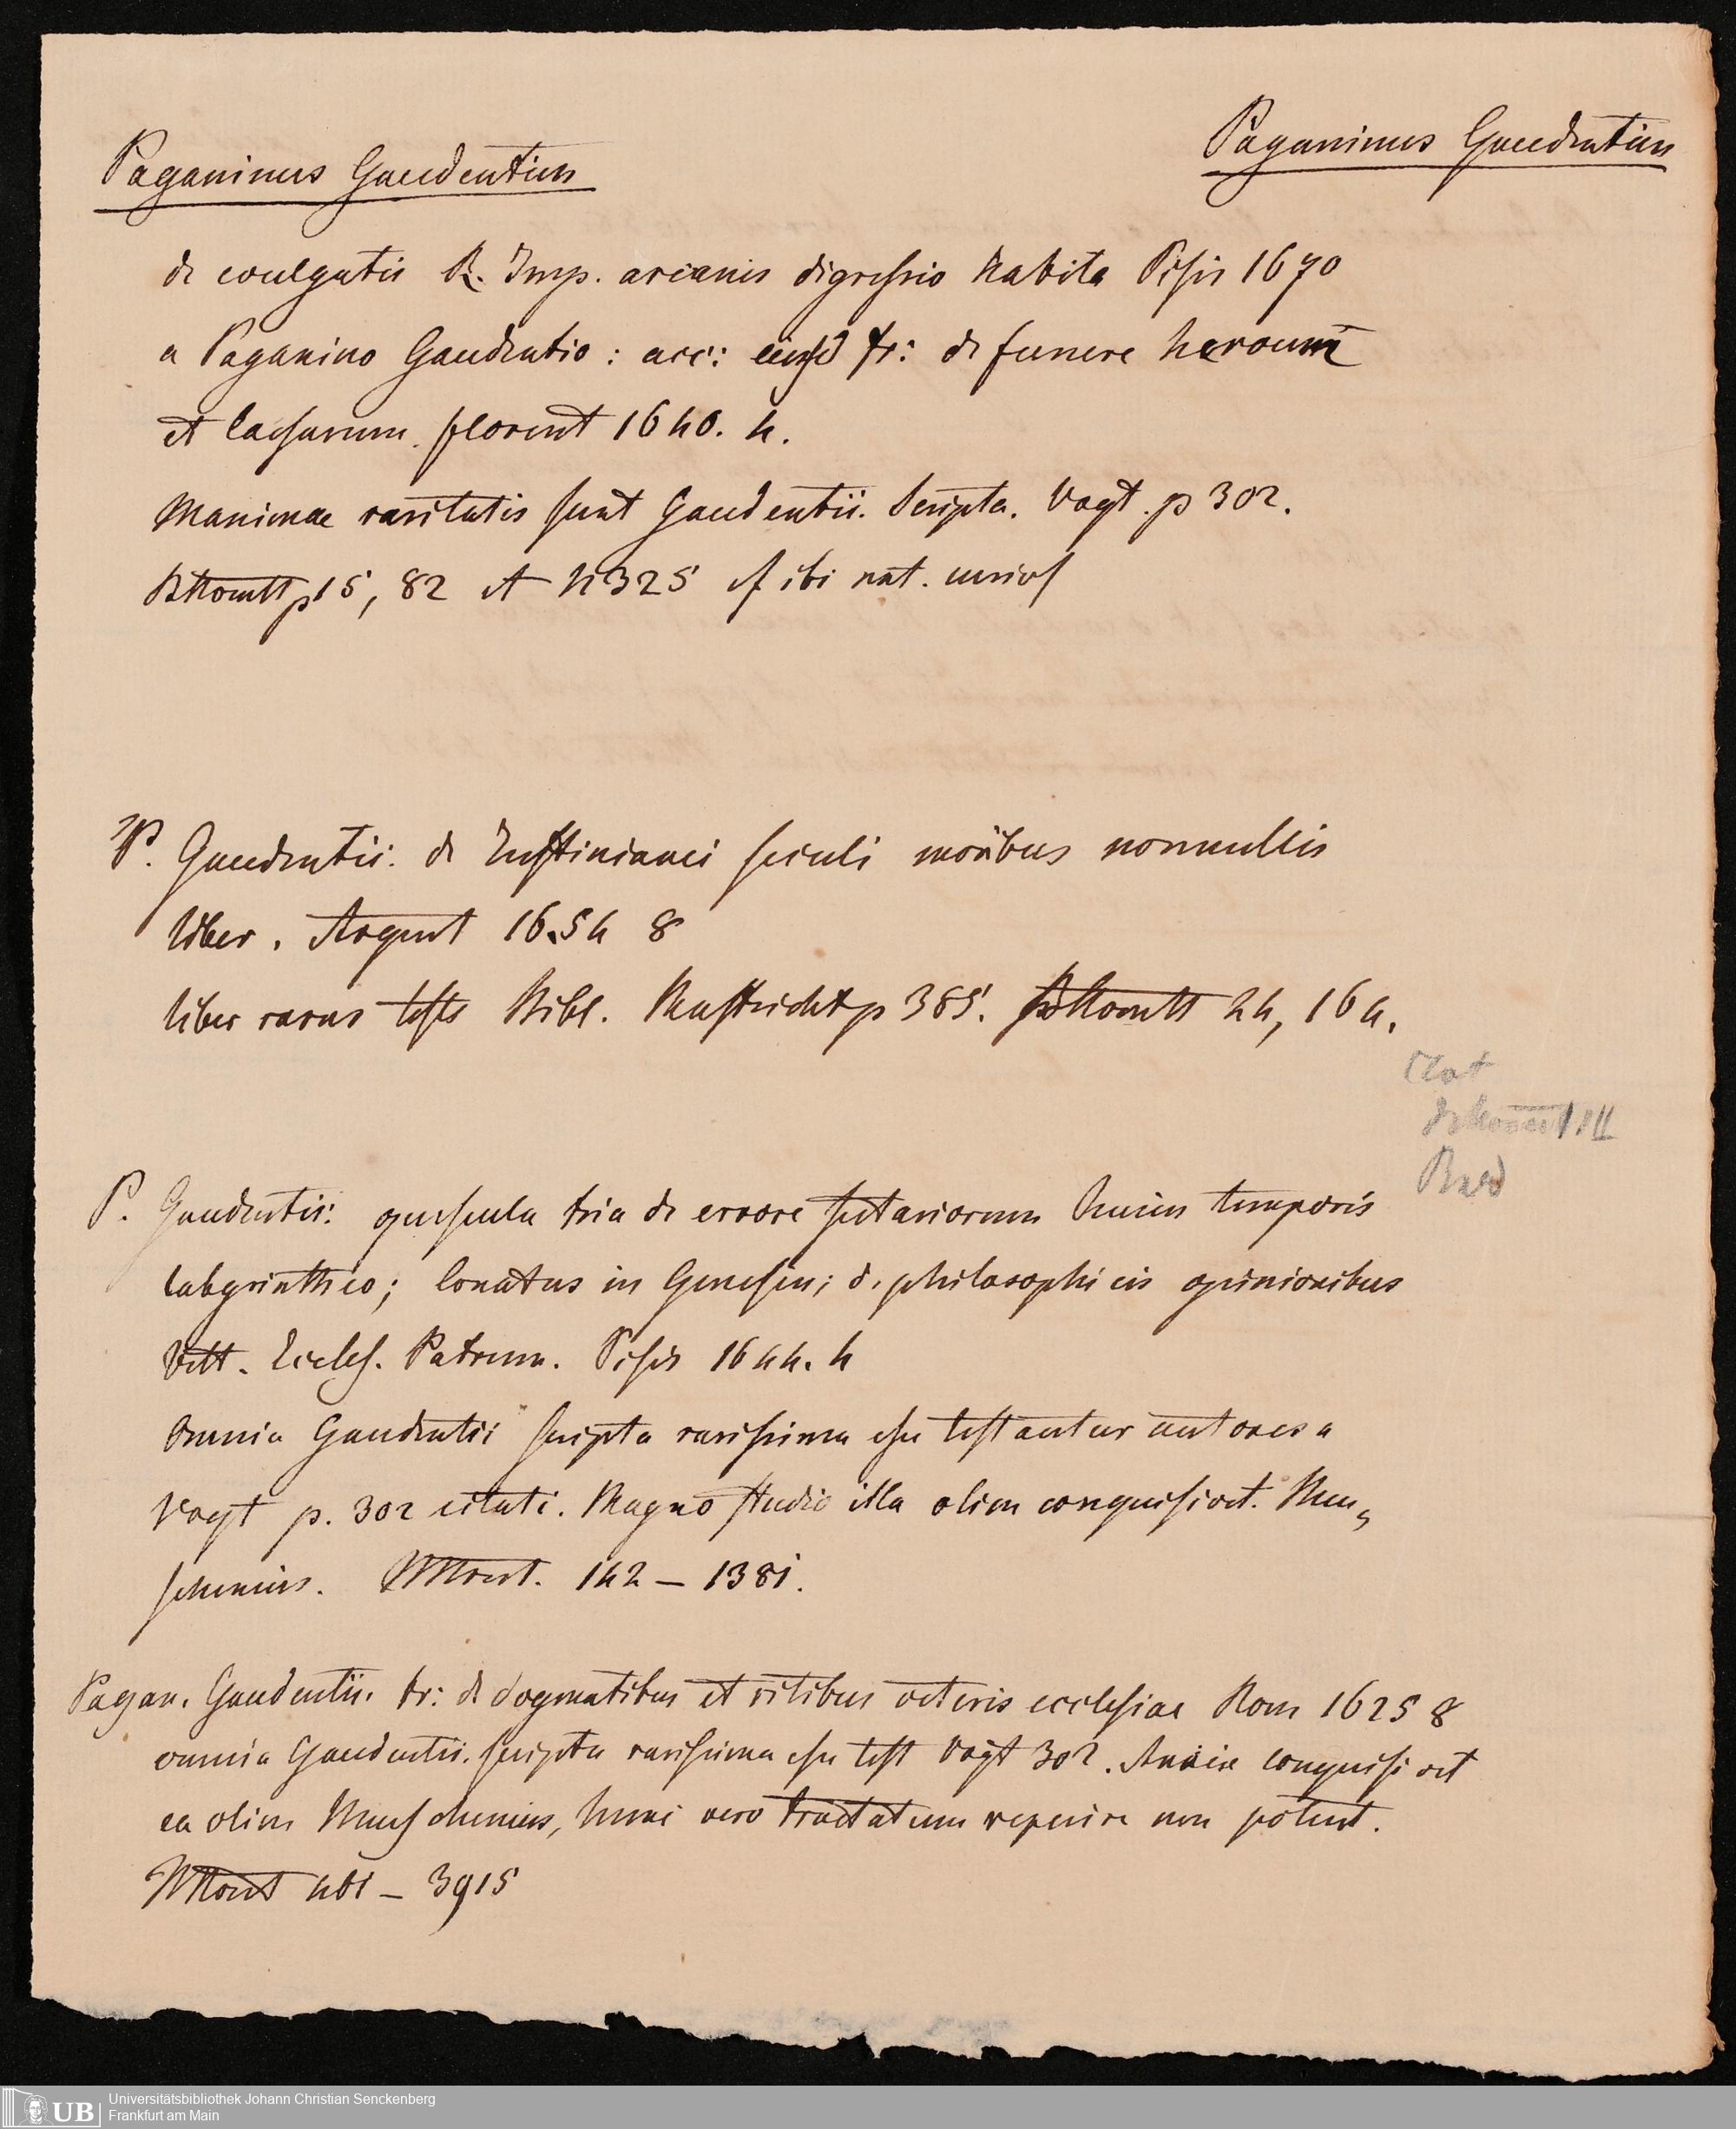 Paganinus Gaudentius
Paganinus Gaudentius
de evulgatis R. Imp. arcanis digressio habita Pisis 1670
a Paganino Gaudentio : acc: eiusd tr: de funere heroum
et Caesarum. florent 1640. 4.
Maximae raritatis sunt Gaudentii. Scripta. Vogt. p 302.
p 15, 82 et 4325 cf ibi not.
P. Gaudentii: de Iustinianei seculi moribus nonnullis
liber. Argent 1654 8
liber rarus teste Bibl. Mastricht p 385. 24, 164.
P. Gaudentii: opuscula tria de errore sectariorum huius temporis
labyrinthico; Conatus in Genesin; d. philosophicis opinionibus
Vett. Eccles. Patrum. Pisis 1644. 4
Omnia Gaudentii scripta rarissima esse testantur autores a
Vogt p. 302 citati. Magno studio illa olim conquisivit. Mu-
schenius. 142 — 1381.
Pagan. Gaudentii. tr: de dogmatibus et ritibus veteris ecclesiae Rom 1625 8
omnia Gaudentii. scripta rarissima esse test Vogt 302. Anxie conquisivit
ea olim Muschenius, hunc vero tractatum reperire non potuit.
401 — 3915
UB
Universitätsbibliothek Johann Christian Senckenberg
Frankfurt am Main